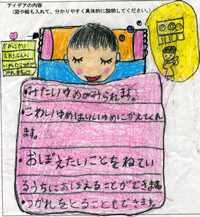 アイデアの内容
(図や絵も入れて、分かりやすく具体的に説明してください。)
・みたいゆめがみられます。
・こわいゆめはいいゆめにかえてくれ
ます。
・おぼえたいことをねてい
るうちにおぼえることができます。
・つかれをとることもできます。